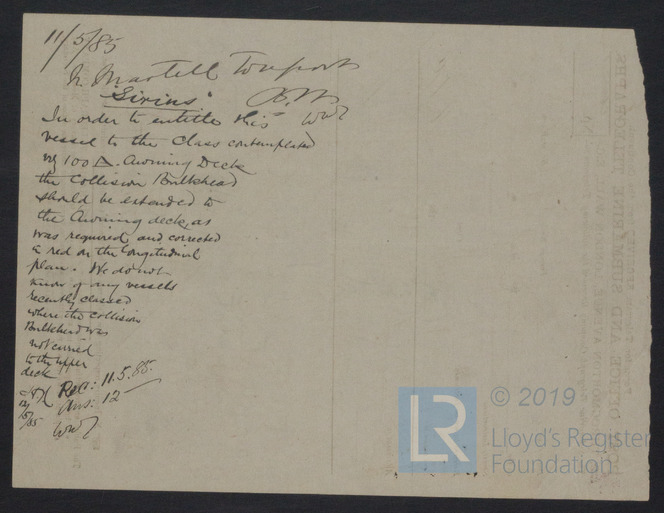 11/5/85
Mr Martell to report
"Sirius"
In order to entitle this
vessel to the Class contemplated
viz 100 A. Awning Deck
the Collision Bulkhead
should be extended to
the Awning deck, as
was required, and corrected
in red on the Longitudinal
plan. We do not
know of any vessels
recently classed
where the Collision
Bulkhead was
not carried
to the upper
deck
12/5/85
Rec: 11.5.85.
Ans: 12
© 2019
LR
Lloyd's Register
Foundation